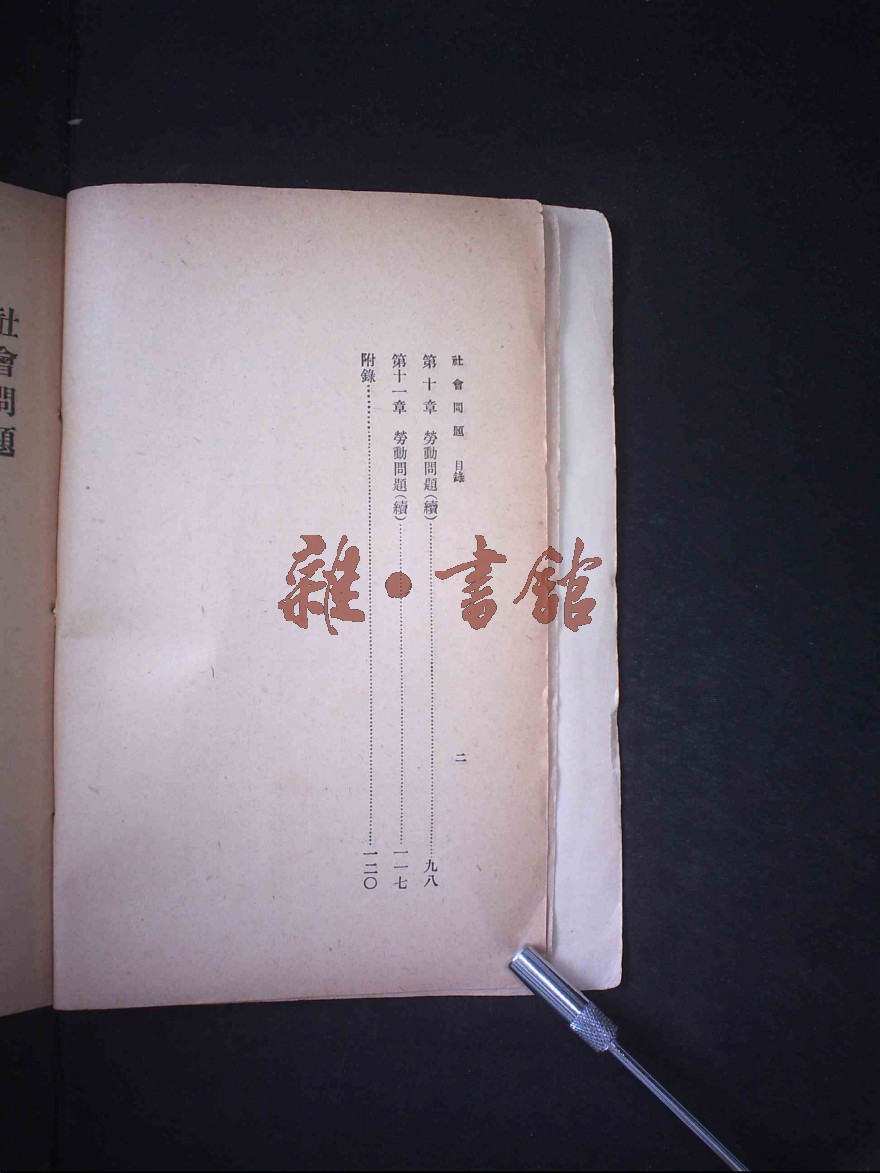 社會問題 目錄 二
第十章 勞動問題(續)……九八
第十一章 勞動問題(續)……一一七
附錄……一二〇
社會問題
雜•書館